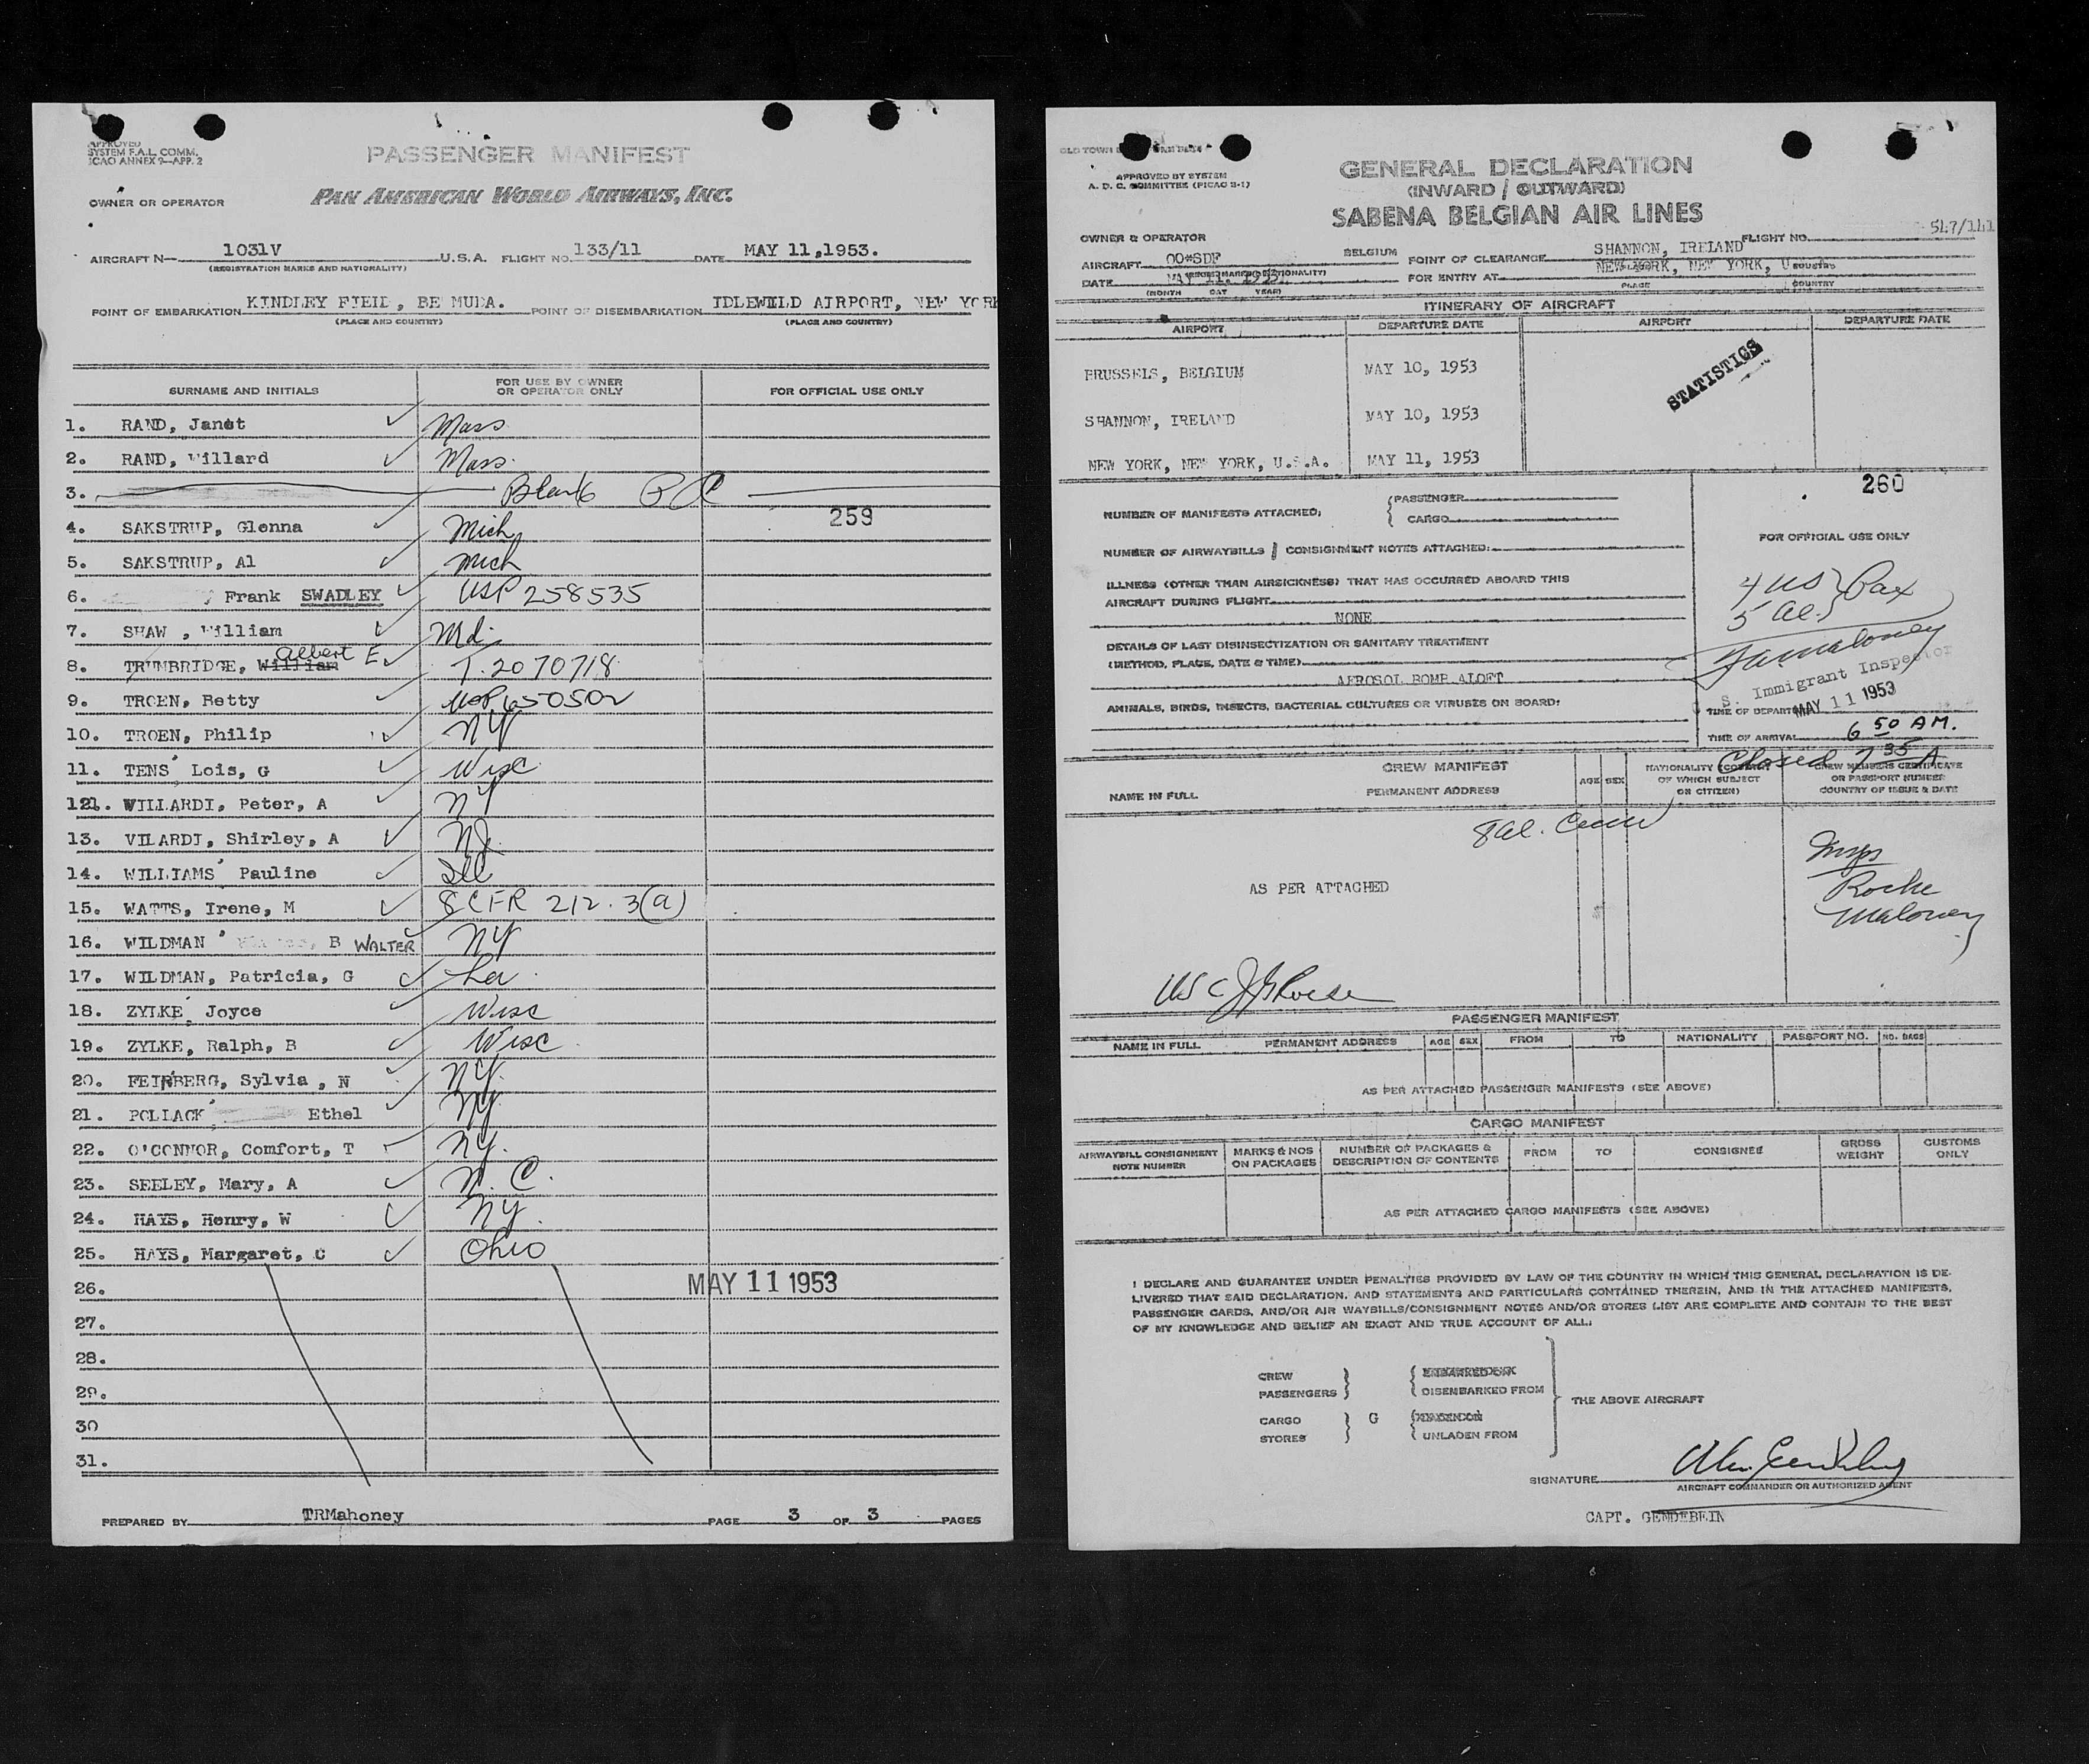 APPROVED
SYSTEM F.A.L. COMM.
ICAO ANNEX 9—APP. 2
PASSENGER MANIFEST
OWNER OR OPERATOR
PAN AMERICAN WORLD AIRWAYS, INC.
AIRCRAFT N— 1031V U.S.A. FLIGHT NO. 133/11 DATE MAY 11,1953.
(REGISTRATION MARKS AND NATIONALITY)
POINT OF EMBARKATION KINDLEY FIELD, BE MUDA. POINT OF DISEMBARKATION IDLEWILD AIRPORT, NEW YORK
(PLACE AND COUNTRY) (PLACE AND COUNTRY)
SURNAME AND INITIALS FOR USE BY OWNER OR OPERATOR ONLY FOR OFFICIAL USE ONLY
1. RAND, Janet Mass
2. RAND, Willard Mass.
3. Blank
259
4. SAKSTRUP, Glenna Mich
5. SAKSTRUP, Al Mich
6. , Frank SWADLEY USP 258535
7. SHAW , William Md.
8. TRUMBRIDGE, William Albert E. T. 2070718
9. TROEN, Betty USP 650502
10. TROEN, Philip NY
11. TENS Lois, G Wisc
12. WILLARDI, Peter, A NY
13. VILARDI, Shirley, A NJ.
14. WILLIAMS Pauline Ill
15. WATTS, Irene, M 8 CFR 212.3(a)
16. WILDMAN , B WALTER NY
17. WILDMAN, Patricia, G La.
18. ZYLKE Joyce Wisc
19. ZYLKE, Ralph, B Wisc
20. FEINBERG, Sylvia , N NY.
21. POLLACK Ethel NY.
22. O'CONNOR, Comfort, T NY.
23. SEELEY, Mary, A N. C.
24. HAYS, Henry, W NY.
25. HAYS, Margaret, C Ohio
26. MAY 11 1953
27.
28.
29.
30
31.
PREPARED BY TRMahoney PAGE 3 OF 3 PAGES
APPROVED BY SYSTEM
A. D. C. COMMITTEE (PICAO S-1)
GENERAL DECLARATION
(INWARD / OUTWARD)
SABENA BELGIAN AIR LINES
OWNER & OPERATOR FLIGHT NO. 547/141
AIRCRAFT OO*SDF BELGIUM POINT OF CLEARANCE SHANNON, IRELAND
DATE MAY 11. 1953. FOR ENTRY AT NEW YORK, NEW YORK, U
(MONTH DAY YEAR) PLACE COUNTRY
ITINERARY OF AIRCRAFT
AIRPORT DEPARTURE DATE AIRPORT DEPARTURE DATE
BRUSSELS, BELGIUM MAY 10, 1953
STATISTICS
SHANNON, IRELAND MAY 10, 1953
NEW YORK, NEW YORK, U.S.A. MAY 11, 1953
260
NUMBER OF MANIFESTS ATTACHED: PASSENGER
CARGO
FOR OFFICIAL USE ONLY
NUMBER OF AIRWAYBILLS / CONSIGNMENT NOTES ATTACHED:
ILLNESS (OTHER THAN AIRSICKNESS) THAT HAS OCCURRED ABOARD THIS
AIRCRAFT DURING FLIGHT
NONE
4 US } Pax
5 Al.
DETAILS OF LAST DISINSECTIZATION OR SANITARY TREATMENT
(METHOD, PLACE, DATE & TIME)
AEROSOL BOMB ALOFT
S. Immigrant Inspector
ANIMALS, BIRDS, INSECTS, BACTERIAL CULTURES OR VIRUSES ON BOARD:
TIME OF DEPARTURE MAY 11 1953
TIME OF ARRIVAL 6 50 AM.
Closed 7 35 A
CREW MANIFEST
NAME IN FULL PERMANENT ADDRESS AGE SEX NATIONALITY (COUNTRY OF WHICH SUBJECT OR CITIZEN) CREW MEMBERS CERTIFICATE OR PASSPORT NUMBER COUNTRY OF ISSUE & DATE
8 al. Crew
Insps
Roche
Maloney
AS PER ATTACHED
PASSENGER MANIFEST
NAME IN FULL PERMANENT ADDRESS AGE SEX FROM TO NATIONALITY PASSPORT NO. NO. BAGS
AS PER ATTACHED PASSENGER MANIFESTS (SEE ABOVE)
CARGO MANIFEST
AIRWAYBILL CONSIGNMENT NOTE NUMBER MARKS & NOS ON PACKAGES NUMBER OF PACKAGES & DESCRIPTION OF CONTENTS FROM TO CONSIGNEE GROSS WEIGHT CUSTOMS ONLY
AS PER ATTACHED CARGO MANIFESTS (SEE ABOVE)
I DECLARE AND GUARANTEE UNDER PENALTIES PROVIDED BY LAW OF THE COUNTRY IN WHICH THIS GENERAL DECLARATION IS DE-
LIVERED THAT SAID DECLARATION, AND STATEMENTS AND PARTICULARS CONTAINED THEREIN, AND IN THE ATTACHED MANIFESTS,
PASSENGER CARDS, AND/OR AIR WAYBILLS/CONSIGNMENT NOTES AND/OR STORES LIST ARE COMPLETE AND CONTAIN TO THE BEST
OF MY KNOWLEDGE AND BELIEF AN EXACT AND TRUE ACCOUNT OF ALL:
CREW EMBARKED ON
PASSENGERS DISEMBARKED FROM
THE ABOVE AIRCRAFT
CARGO G
STORES UNLADEN FROM
SIGNATURE
AIRCRAFT COMMANDER OR AUTHORIZED AGENT
CAPT. GENDEBEIN